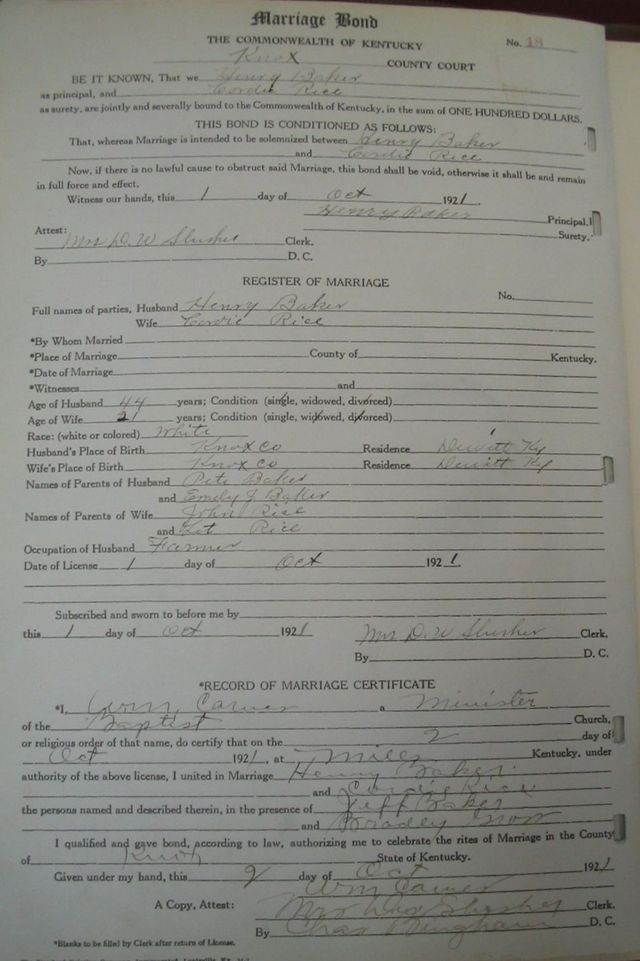 Marriage Bond
THE COMMONWEALTH OF KENTUCKY No. 18
Knox COUNTY COURT
BE IT KNOWN, That we Henry Baker
as principal, and Cordie Rice
as surety, are jointly and severally bound to the Commonwealth of Kentucky, in the sum of ONE HUNDRED DOLLARS.
THIS BOND IS CONDITIONED AS FOLLOWS:
That, whereas Marriage is intended to be solemnized between Henry Baker
and Cordie Rice
Now, if there is no lawful cause to obstruct said Marriage, this bond shall be void, otherwise it shall be and remain
in full force and effect.
Witness our hands, this 1 day of Oct 1921.
Henry Baker Principal,
Surety,
Attest:
Mrs D. W Slusher Clerk.
By D. C.
REGISTER OF MARRIAGE
No.
Full names of parties, Husband Henry Baker
Wife Cordie Rice
*By Whom Married
*Place of Marriage County of Kentucky.
*Date of Marriage
*Witnesses and
Age of Husband 44 years; Condition (single, widowed, divorced)
Age of Wife 21 years; Condition (single, widowed, divorced)
Race: (white or colored) White
Husband's Place of Birth Knox Co Residence Dewitt Ky
Wife's Place of Birth Knox Co Residence Dewitt Ky
Names of Parents of Husband Pete Baker
and Emely J Baker
Names of Parents of Wife John Rice
and Rice
Occupation of Husband Farmer
Date of License 1 day of Oct 1921.
Subscribed and sworn to before me by
this 1 day of Oct 1921 Mrs D. W Slusher Clerk.
By D. C.
*RECORD OF MARRIAGE CERTIFICATE
*I, Wm. Carnes a Minister
of the Baptist Church,
or religious order of that name, do certify that on the 2 day of
Oct 1921, at Mills Kentucky, under
authority of the above license, I united in Marriage Henry Baker
and Cordie Rice
the persons named and described therein, in the presence of Jeff Baker
and Bradley
I qualified and gave bond, according to law, authorizing me to celebrate the rites of Marriage in the County
of Knox State of Kentucky.
Given under my hand, this 2 day of Oct 1921
Wm Carnes
A Copy, Attest: Mrs D W Slusher Clerk.
By Chas Bingham D. C.
*Blanks to be filled by Clerk after return of License.